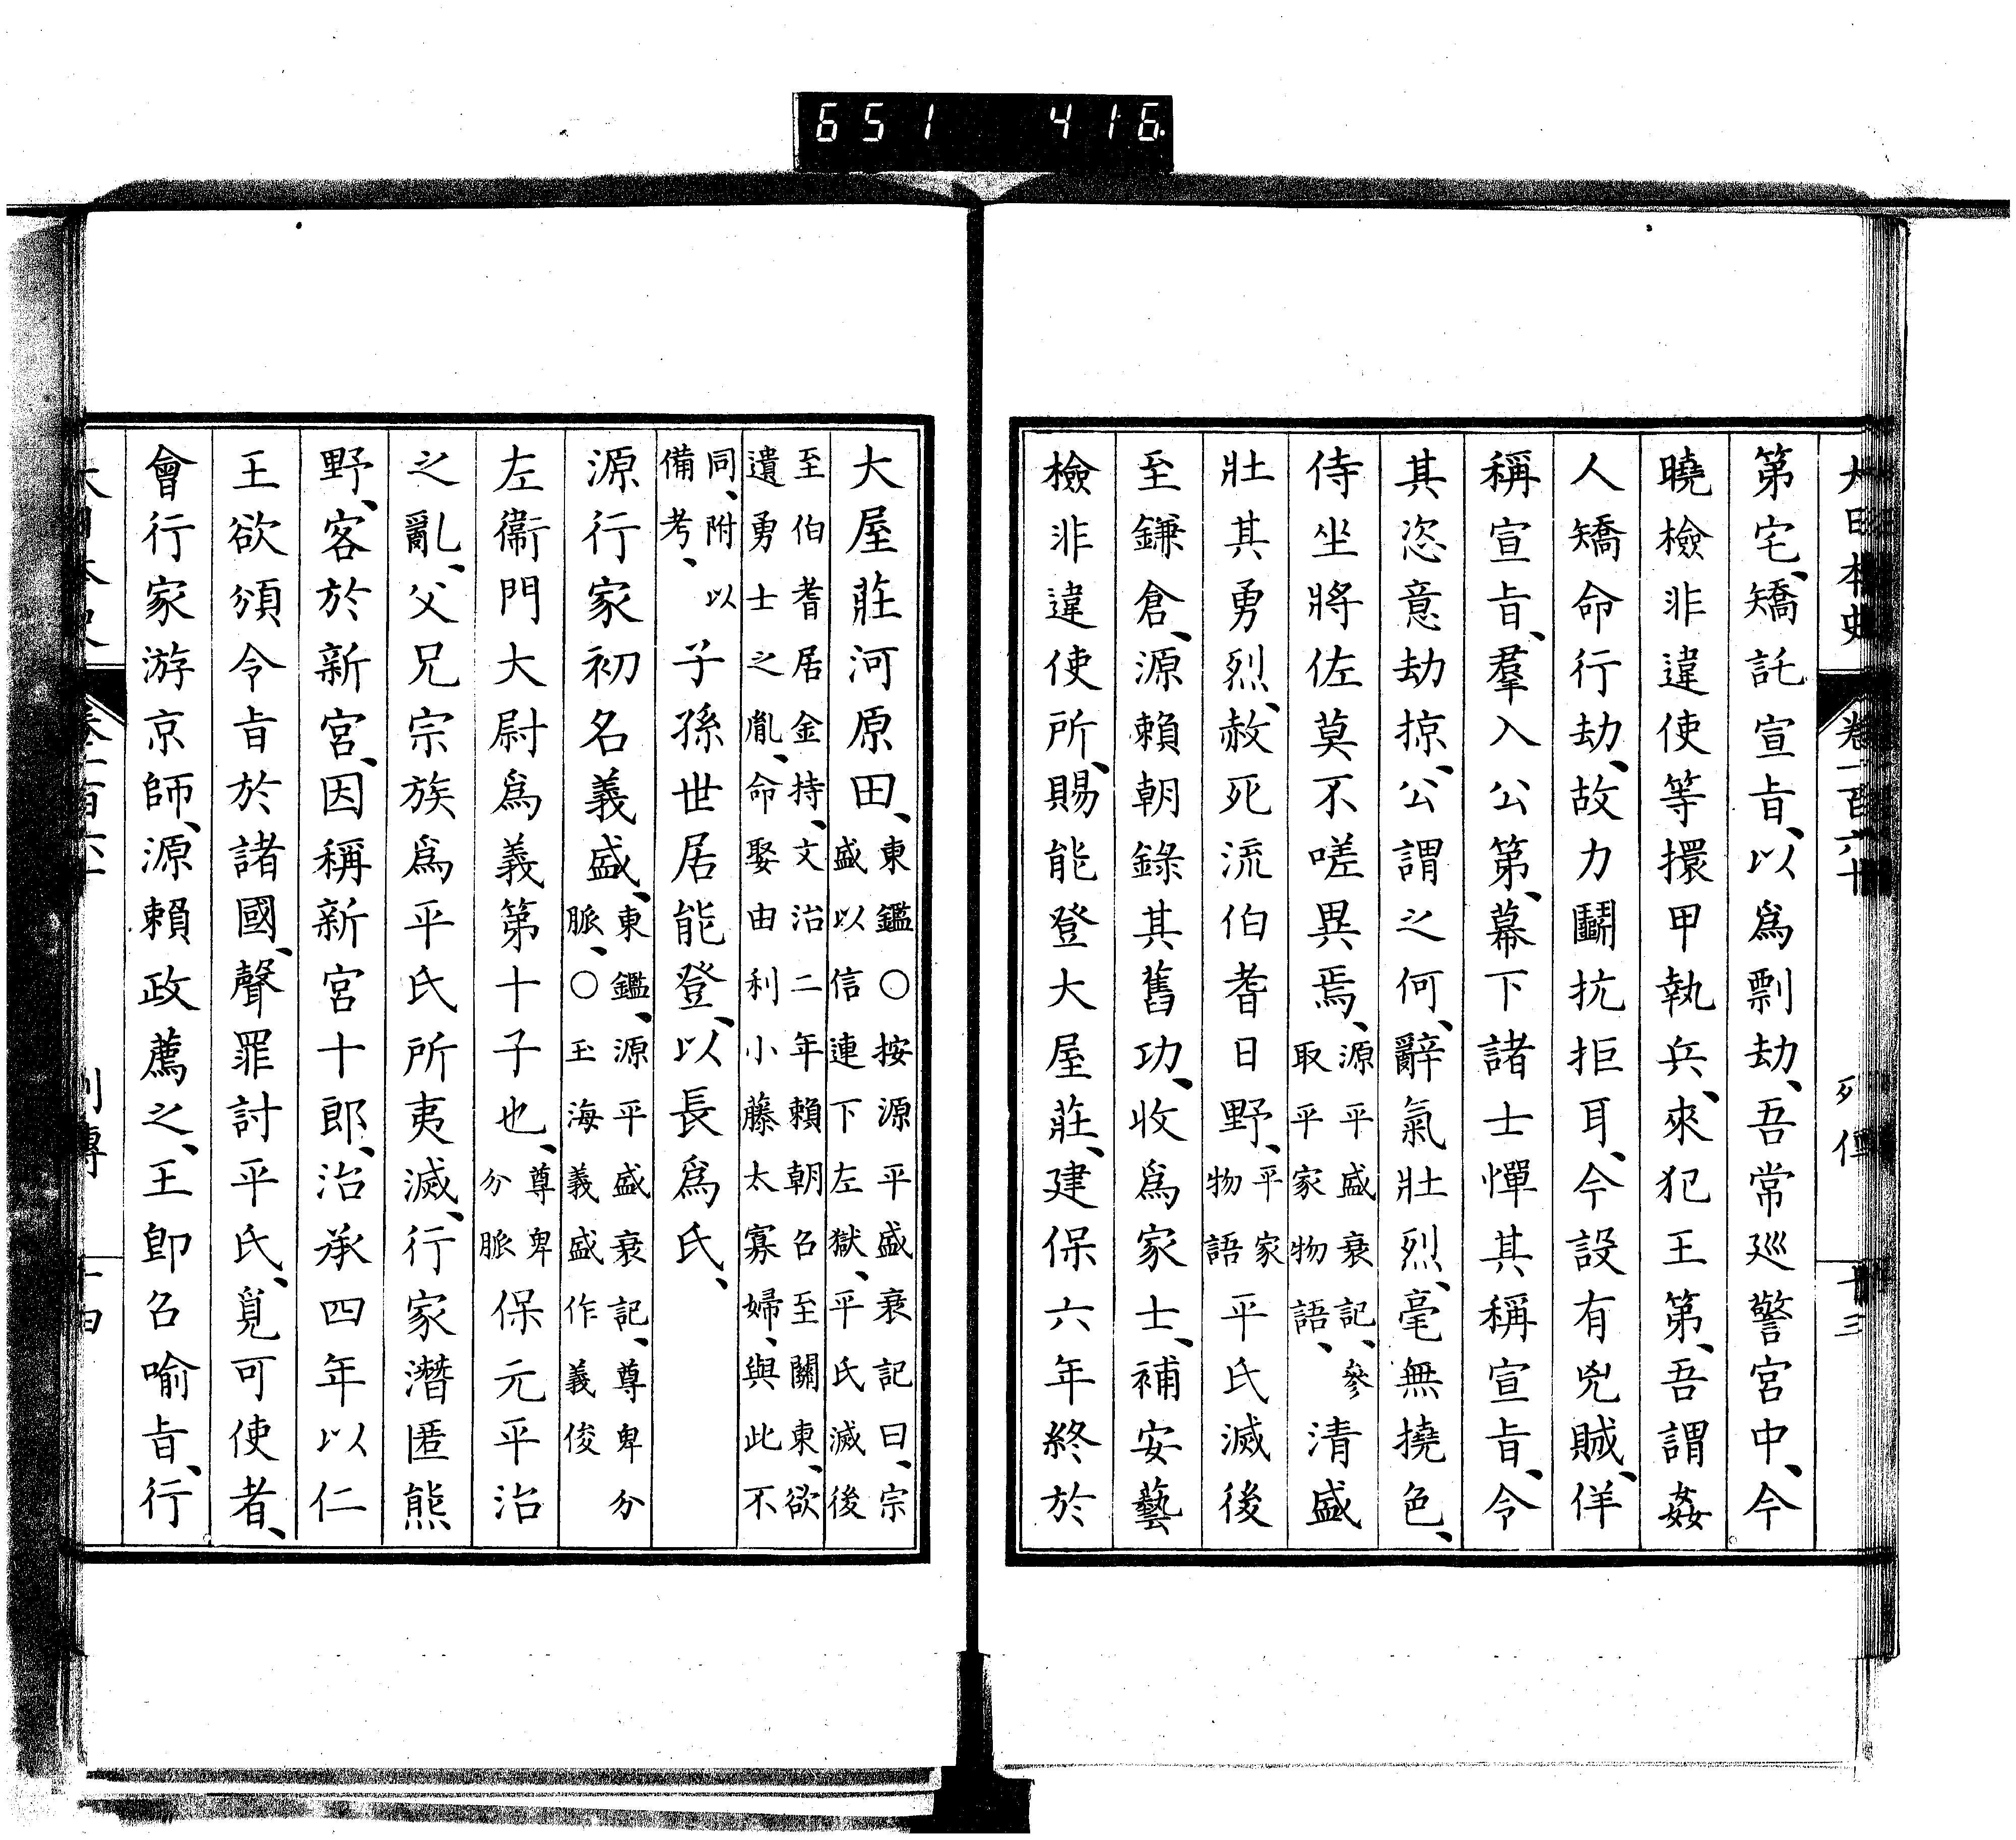 651 416
大日本史 卷一百六十 列傳 十三
第宅、矯託宣旨、以爲剽劫、吾常巡警宮中、今
曉檢非違使等擐甲執兵、來犯王第、吾謂姦
人矯命行劫、故力鬭抗拒耳、今設有兇賊、佯
稱宣旨、羣入公第、幕下諸士憚其稱宣旨、令
其恣意劫掠、公謂之何、辭氣壯烈、毫無撓色、
侍坐將佐莫不嗟異焉、源平盛衰記、參取平家物語、清盛
壯其勇烈、赦死流伯耆日野、平家物語平氏滅後
至鎌倉、源賴朝錄其舊功、收爲家士、補安藝
檢非違使所、賜能登大屋莊、建保六年終於
大屋莊河原田、東鑑〇按源平盛衰記曰、宗盛以信連下左獄、平氏滅後
至伯耆居金持、文治二年賴朝召至關東、欲遺勇士之胤、命娶由利小藤太寡婦、與此不
同、附以備考、子孫世居能登、以長爲氏、
源行家初名義盛、東鑑、源平盛衰記、尊卑分脈、〇玉海義盛作義俊
左衞門大尉爲義第十子也、尊卑分脈保元平治
之亂、父兄宗族爲平氏所夷滅、行家潛匿熊
野、客於新宮、因稱新宮十郎、治承四年以仁
王欲頒令旨於諸國、聲罪討平氏、覓可使者、
會行家游京師、源賴政薦之、王卽召喻旨、行